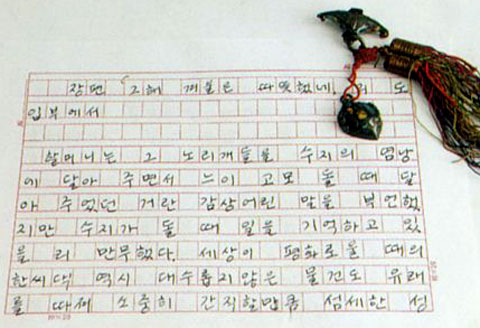 장편 「그해 겨울은 따뜻했네」의 도
입부에서
할머니는 그 노리개들을 수지의 염낭
에 달아 주면서 느이 고모 돌 때 달
아 주었던 거란 감상어린 말을 부언했
지만 수지가 돌 때 일을 기억하고 있
을 리 만무했다. 세상이 평화로울 때의
한씨댁 역시 대수롭지않은 물건도 유래
를 따져 소중히 간직할만큼 섬세한 성